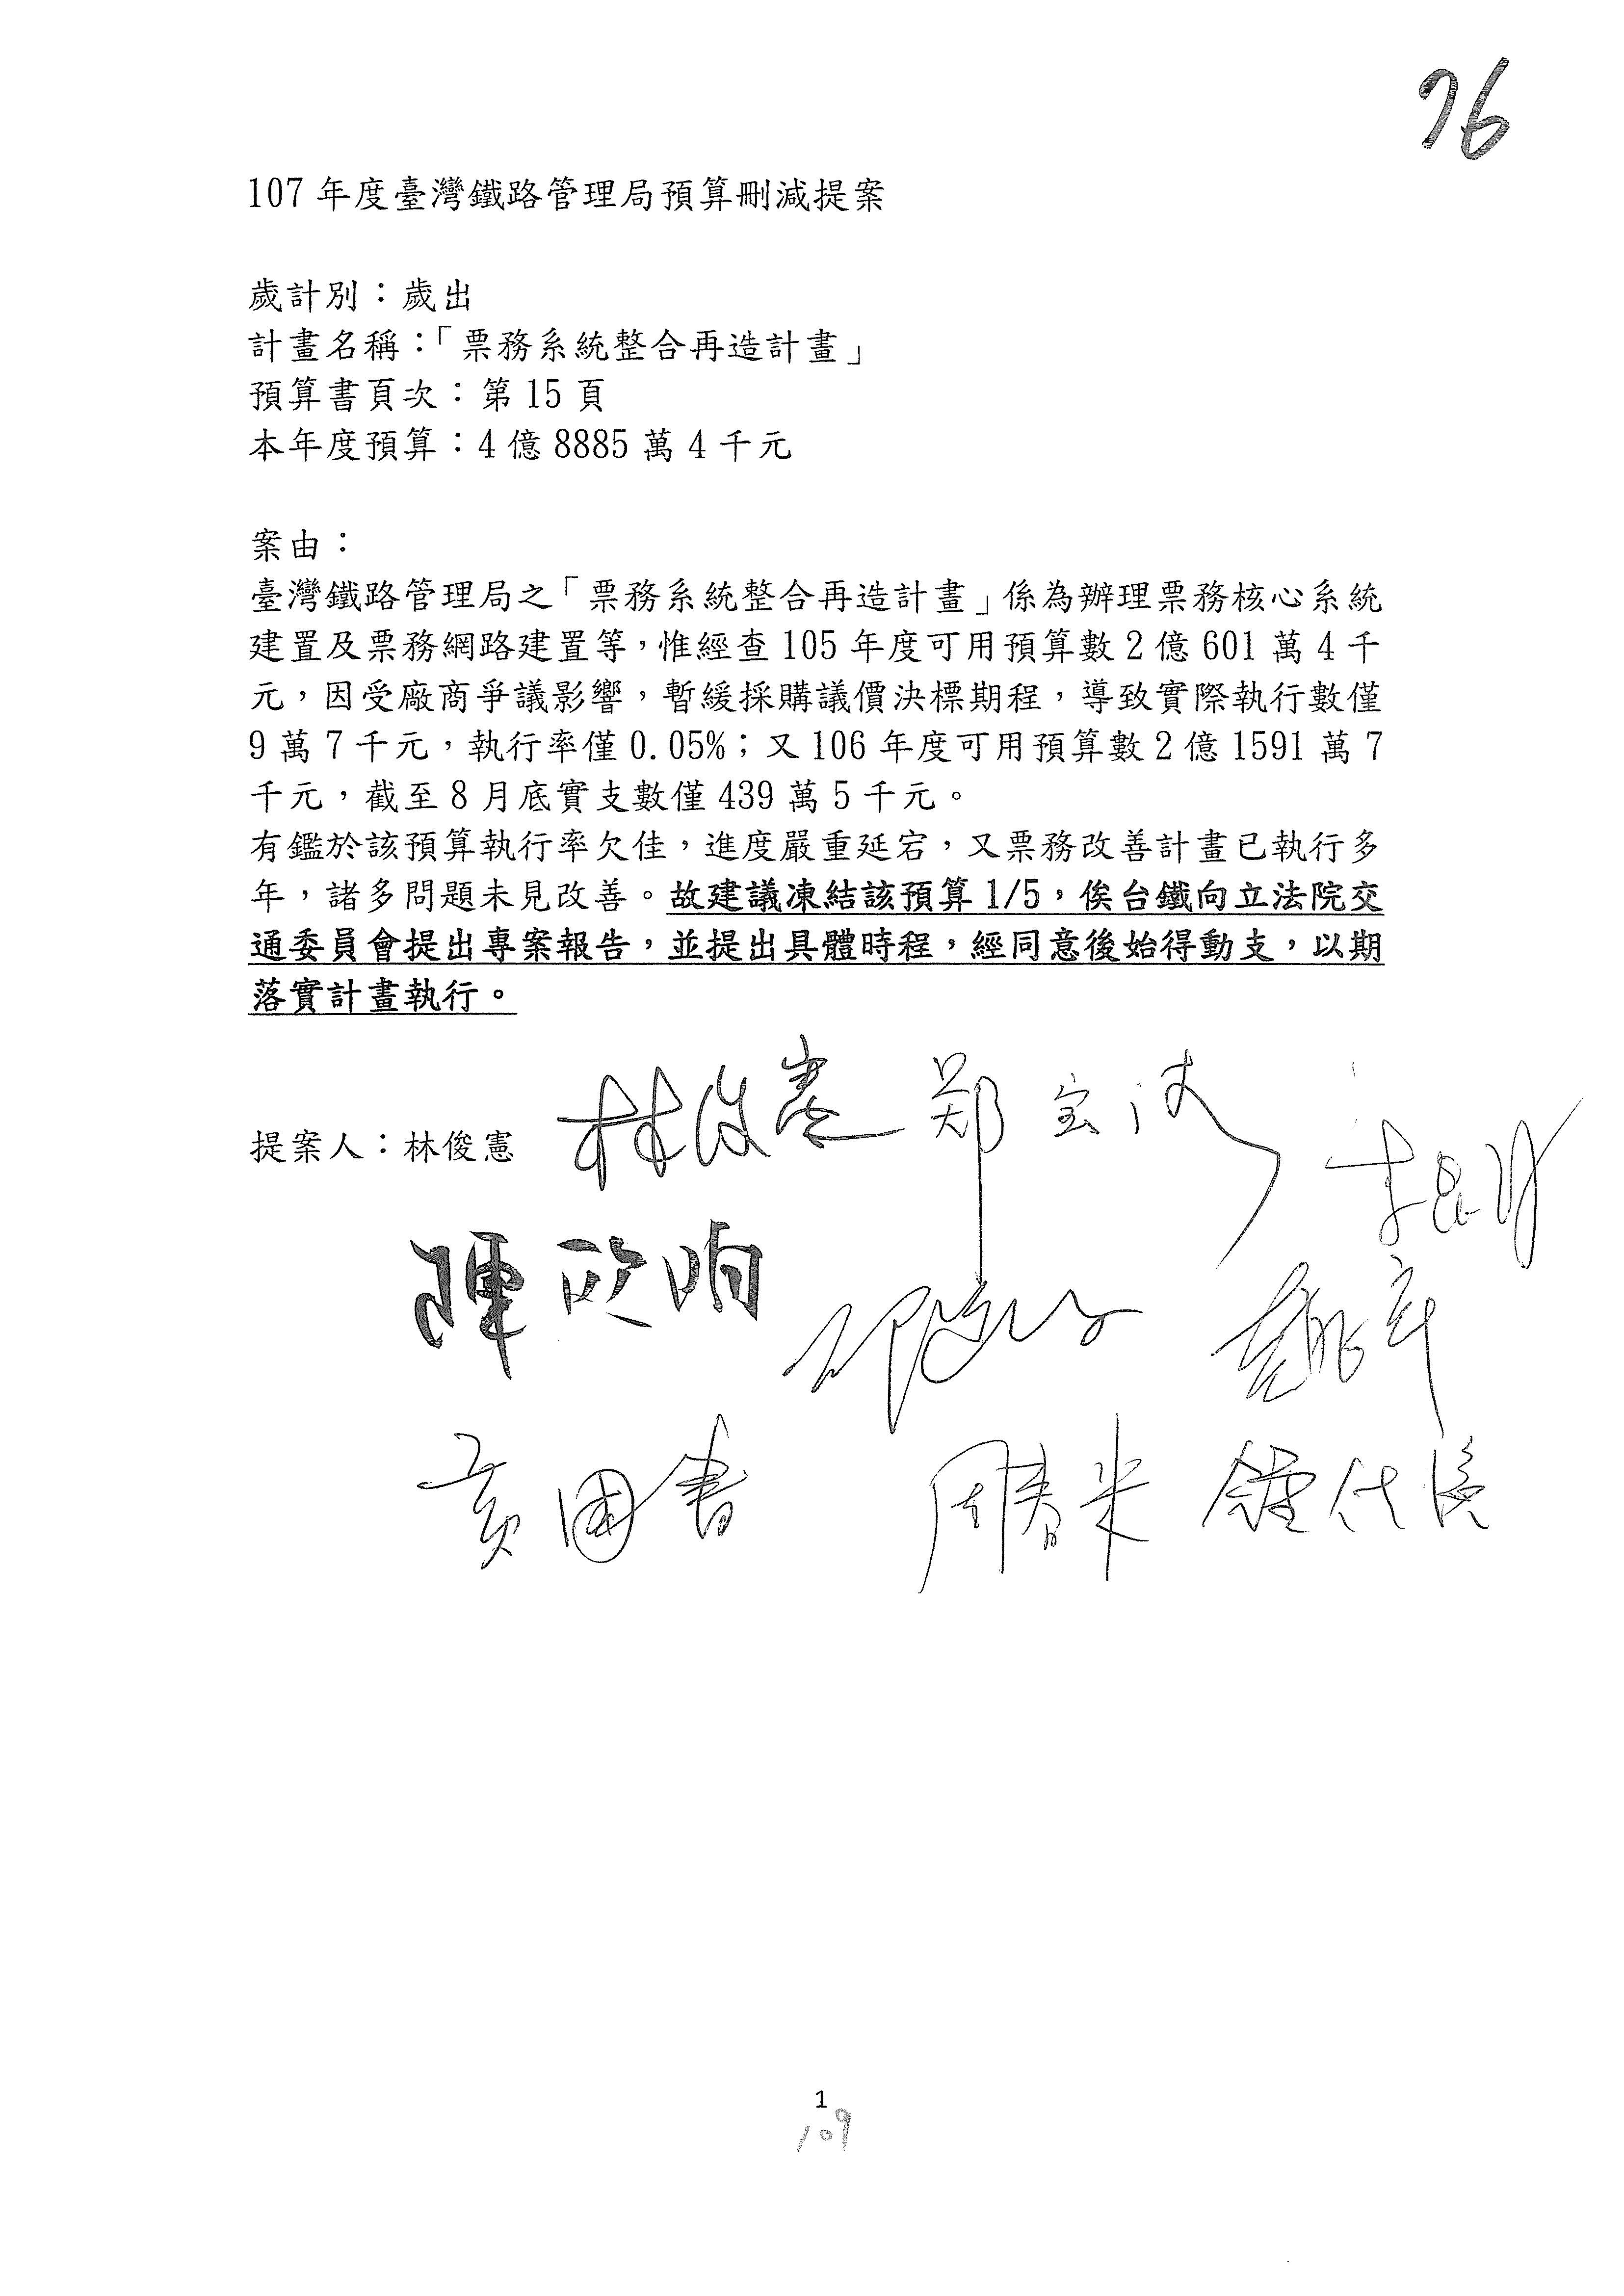 76
107 年度臺灣鐵路管理局預算刪減提案
歲計別：歲出
計畫名稱：「票務系統整合再造計畫」
預算書頁次：第 15 頁
本年度預算：4 億 8885 萬 4 千元
案由：
臺灣鐵路管理局之「票務系統整合再造計畫」係為辦理票務核心系統
建置及票務網路建置等，惟經查 105 年度可用預算數 2 億 601 萬 4 千
元，因受廠商爭議影響，暫緩採購議價決標期程，導致實際執行數僅
9 萬 7 千元，執行率僅 0.05%；又 106 年度可用預算數 2 億 1591 萬 7
千元，截至 8 月底實支數僅 439 萬 5 千元。
有鑑於該預算執行率欠佳，進度嚴重延宕，又票務改善計畫已執行多
年，諸多問題未見改善。故建議凍結該預算 1/5，俟台鐵向立法院交
通委員會提出專案報告，並提出具體時程，經同意後始得動支，以期
落實計畫執行。
提案人：林俊憲 林俊憲 郑宝清 李昆澤
陳歐珀
黃國書 周春米 鍾佳濱
1
109